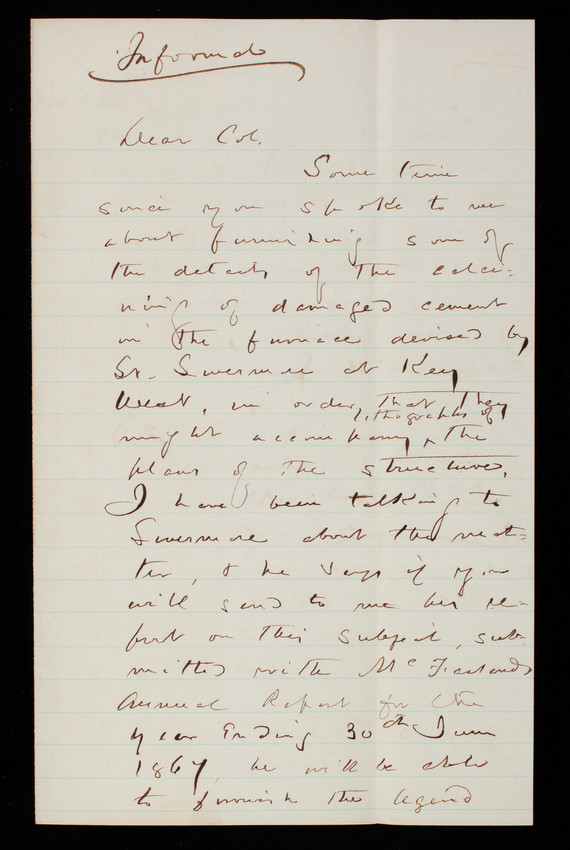 Informal
Dear Col.
Some time
since you spoke to me
about furnishing some of
the details of the calci=
ning of damaged cement
in the furnace devised by
Lt. Livermore at Key
West, in order, that they
might accompany ^ lithographs of the
plans of the structure.
I have been talking to
Livermore about the mat=
ter, & he says if you
will send to me his re=
port on this subject, sub=
mitted with McFarland's
Annual Report for the
year Ending 30th June
1867, he will be able
to furnish the legend